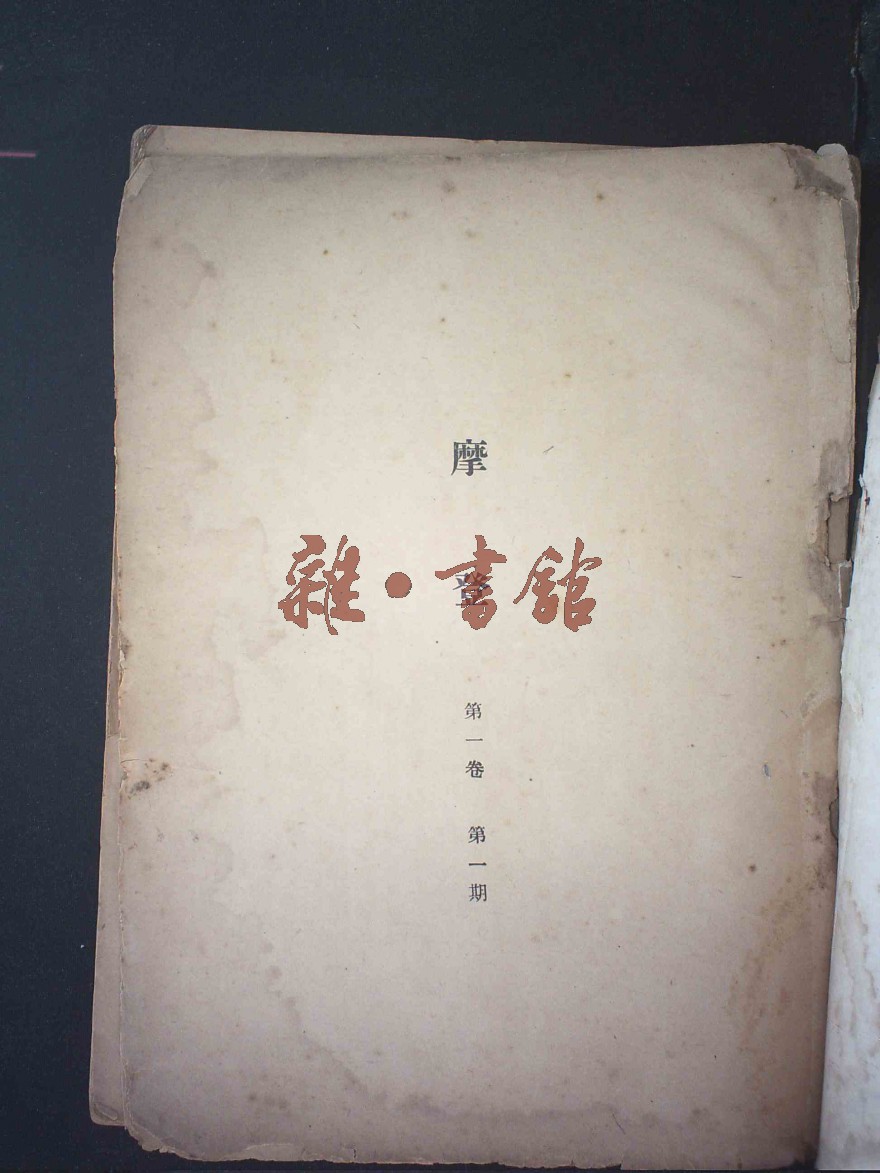 摩登
第一卷 第一期
雜·書館